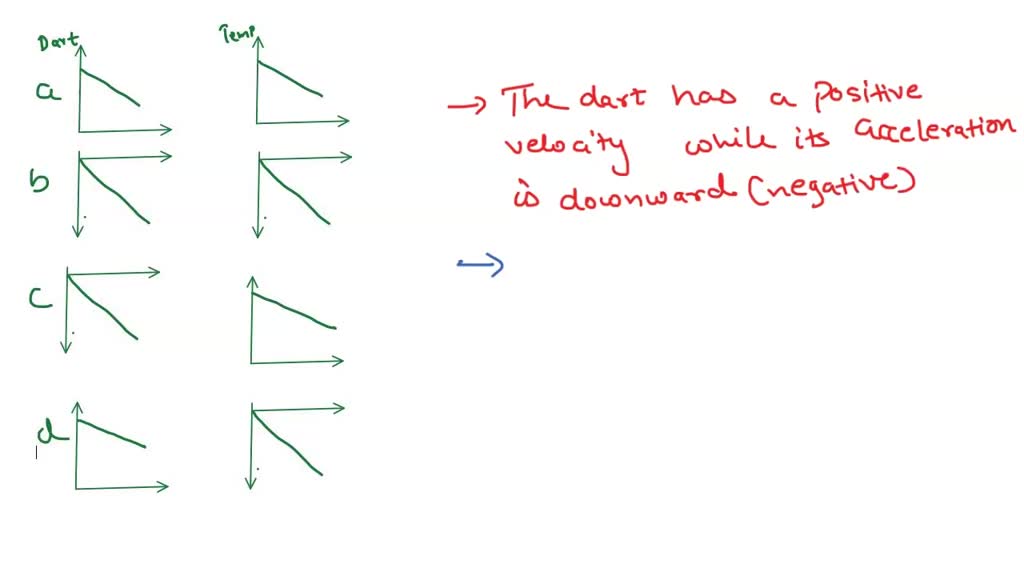 Dart Temp
a
b
c
d
→ The dart has a positive
velocity while its acceleration
is downward (negative)